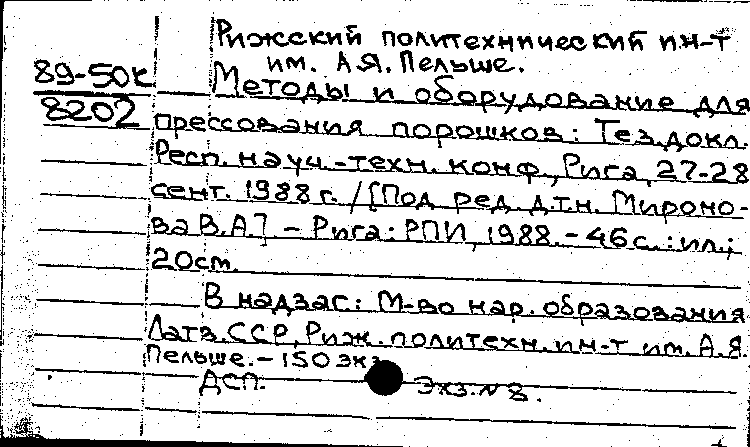 Рижский политехнический ин-т
им. А.Я. Пельше.
89-50к
8202
Методы и оборудование для
прессования порошков: Тез. докл.
Респ. науч.-техн. конф., Рига, 27-28
сент. 1988 г. / [Под ред. д.т.н. Мироно-
ва В.А.] - Рига: РПИ, 1988. - 46 с.: ил.;
20 cm.
В надзаг.: М-во нар. образования
Латв. ССР, Риж. политехн. ин-т им. А.Я.
Пельше. - 150 экз.
ДСП. Экз. № 8.